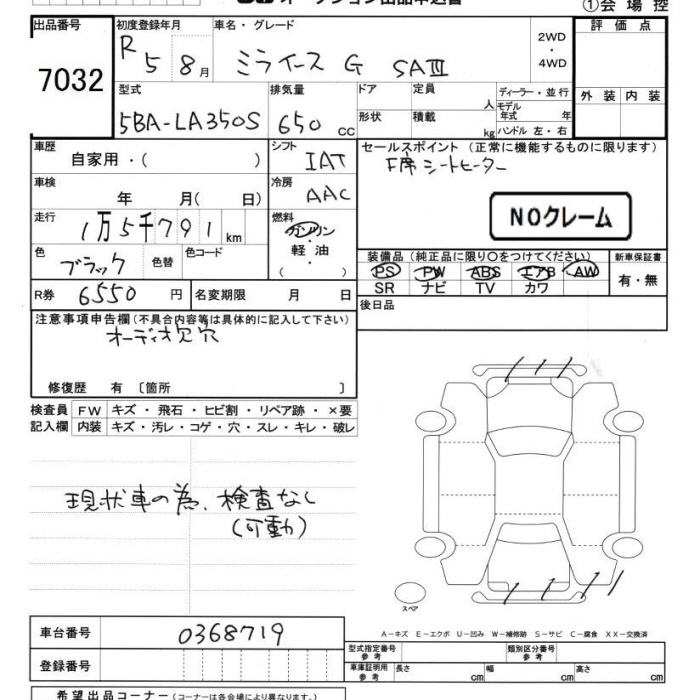 オークション出品申込書
①会場控
出品番号
7032
初度登録年月
R 5 8月
車名・グレード
ミライース G SAⅢ
2WD
・
4WD
評価点
外装 内装
型式
5BA-LA350S
排気量
650 cc
ドア
形状
定員
人
積載
kg
ディーラー・並行
モデル年式 年
ハンドル 左・右
車歴
自家用・( )
シフト
IAT
セールスポイント(正常に機能するものに限ります)
F席シートヒーター
車検
年 月( 日)
冷房
AAC
NOクレーム
走行
1万5千791km
燃料
ガソリン
・
軽油
・
( )
色
ブラック
色替
色コード
装備品(純正品に限り○をつけてください)
PS PW ABS エアB AW
SR ナビ TV カワ
新車保証書
有・無
R券
6550円
名変期限 月 日
後日品
注意事項申告欄(不具合内容等は具体的に記入して下さい)
オーディオ欠穴
修復歴 有〔箇所 〕
検査員記入欄
FW キズ・飛石・ヒビ割・リペア跡・×要
内装 キズ・汚レ・コゲ・穴・スレ・キレ・破レ
現状車の為、検査なし
(可動)
スペア
A-キズ E-エクボ U-凹み W-補修跡 S-サビ C-腐食 XX-交換済
車台番号
0368719
登録番号
型式指定番号 参考
類別区分番号 参考
車庫証明用 参考
長さ cm
幅 cm
高さ cm
希望出品コーナー(コーナーは各会場により異なります。)